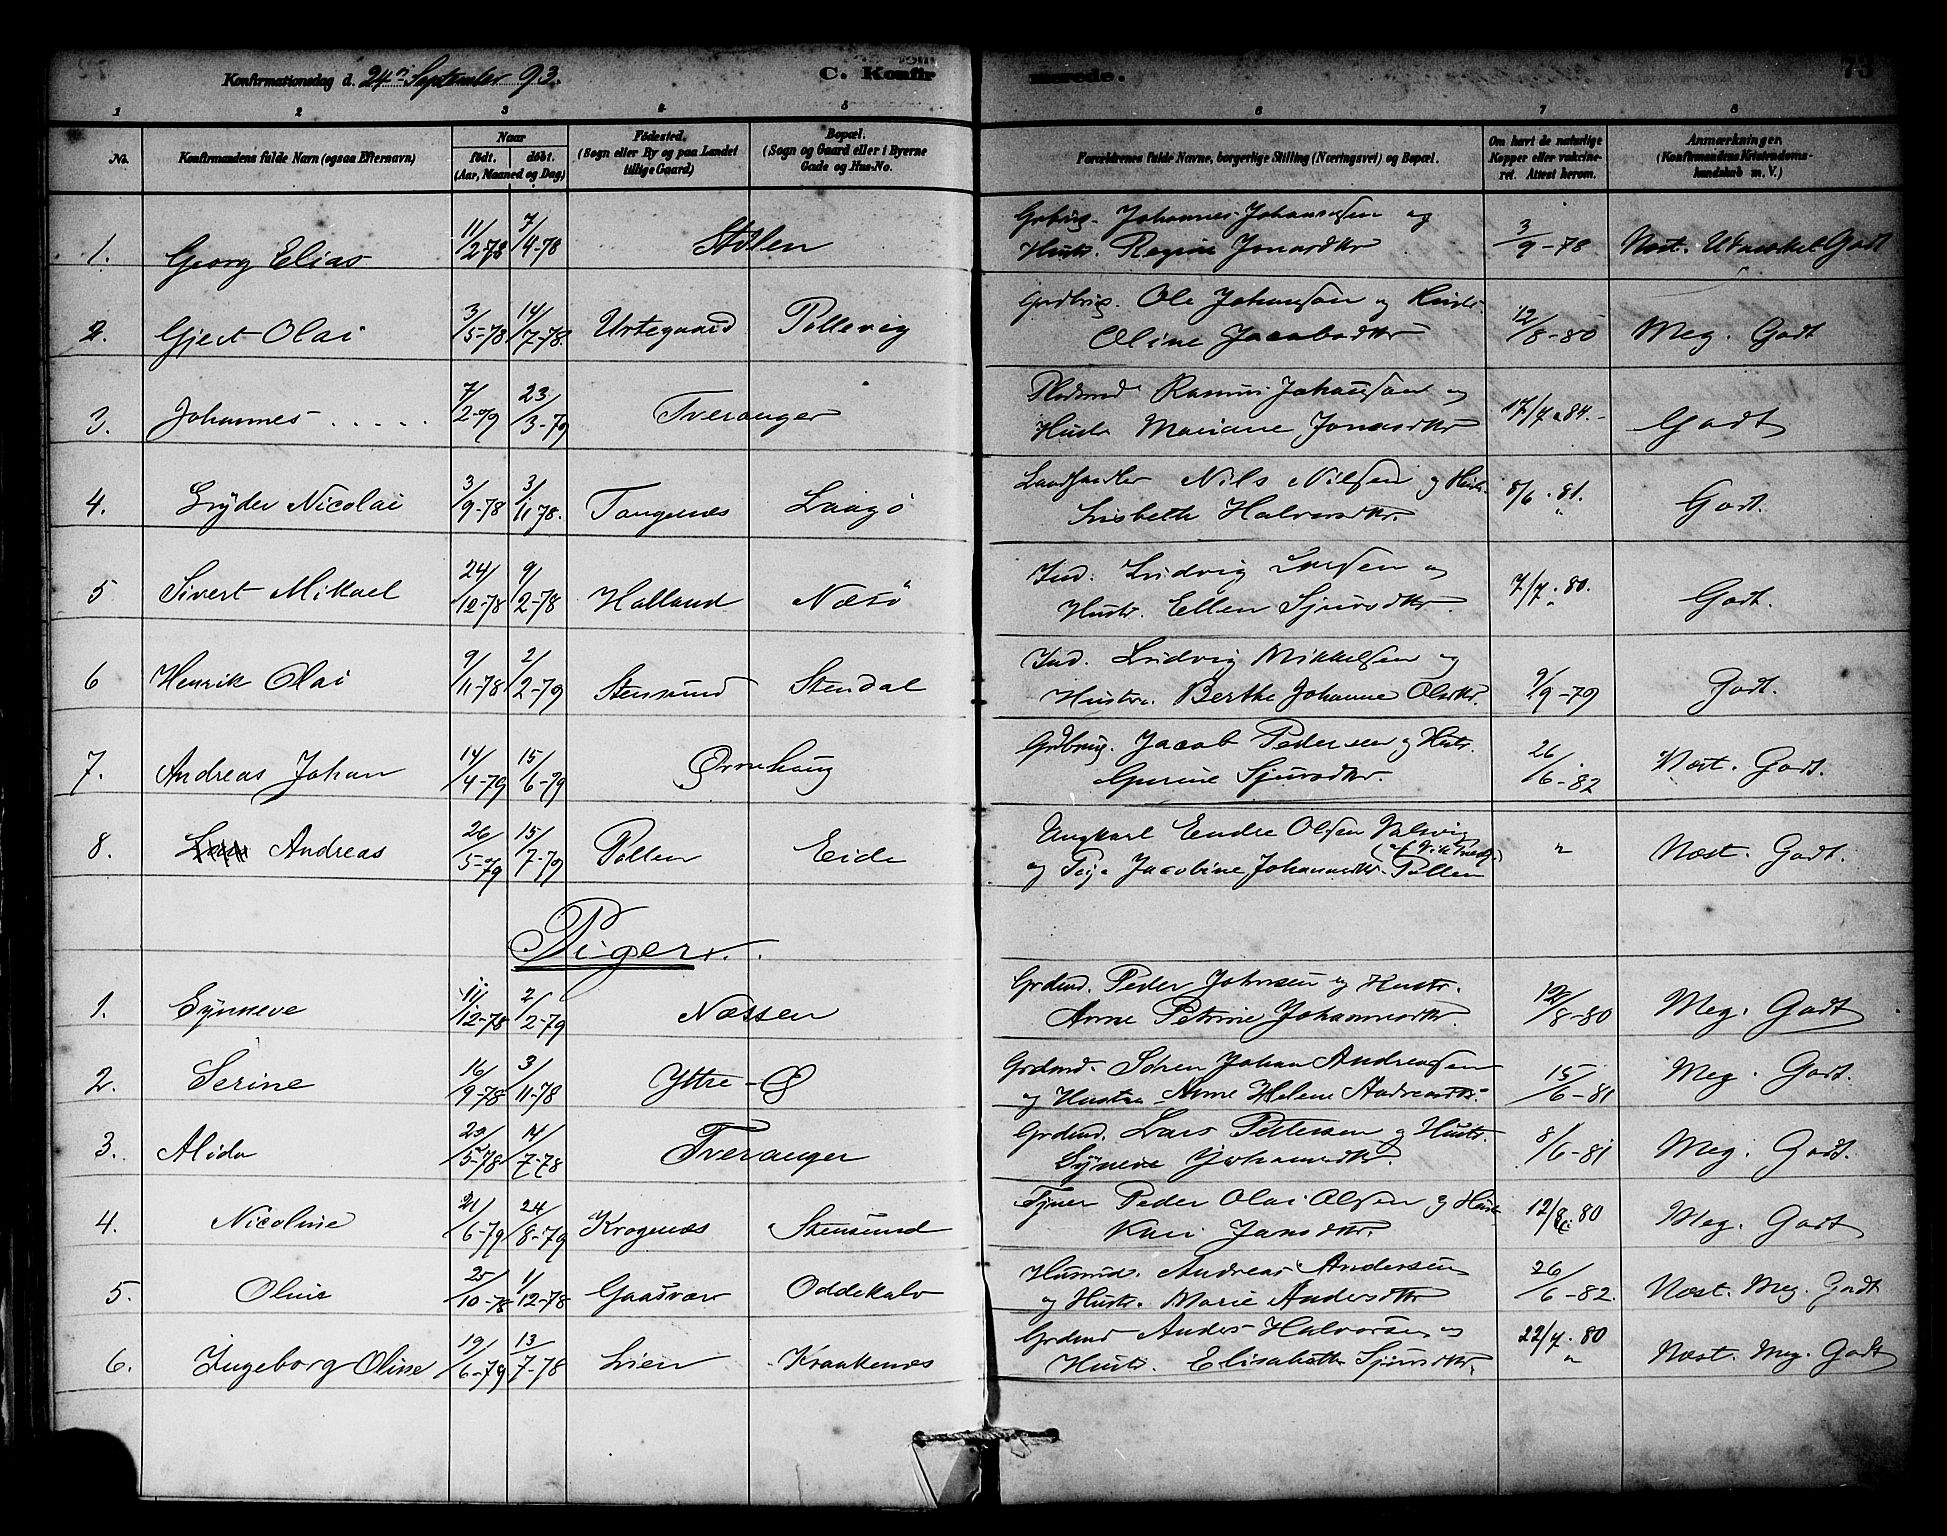 Konfirmationsdag d. 24de September 93. C. Konfirmerede. 73
1 2 3 4 5 6 7 8
No. Konfirmandens fulde Navn (ogsaa Efternavn) Naar født. døbt. (Aar, Maaned og Dag) Fødested. (Sogn eller By og paa Landet tillige Gaard) Bopæl. (Sogn og Gaard eller i Byerne Gade og Hus-No. Forældrenes fulde Navne, borgerlige Stilling (Næringsvei) og Bopæl. Om havt de naturlige Kopper eller vakcineret. Attest herom. Anmærkninger. (Konfirmandens Kristendomskundskab m. V.)
1. Georg Elias 11/2-78 7/4-78 Stölen Grbrug. Johannes Johannesen og
Hustr. Regine Jonasdtr 3/9-78 Næst. Udmærket Godt
2. Gjert Olai 3/5-78 14/7-78. Urtegaard Pollevig Grdbrug. Ole Johansen og Hustr.
Oline Jacobsdtr 12/8-80 Meg. Godt
3. Johannes ..... 7/2-79 23/3-79 Tveranger Rasmus Johansen og
Hustr Mariane Jonasdtr 17/7-84.- Godt
4. Lyder Nicolai 3/9-78 3/11-78. Tangenæs Laagö Landhandler Nils Nilsen og Hustr.
Lisbeth Halvorsdtr. 8/6.81. Godt.
5 Sivert Mikael 24/12-78 9/2-78 Halland Næsö Ind. Ludvig Larsen og
Hustr. Ellen Sjursdtr. 7/7.80. Godt.
6 Henrik Olai 9/11-78 2/2-79 Stensund Stendal Ind. Ludvig Mikkelsen og
Hustru. Berthe Johanne Olsdtr. 9/9-79 Godt.
7. Andreas Johan 14/4-79 15/6-79 Ørnehaug Grdbrug. Jacob Pedersen og Hustr.
Gurine Sjursdtr. 26/6-82 Næst. Godt.
8. Andreas 26/5-79 15/7-79 Pollen Eide Ungkarl Endre Olsen Valevig
og Pige Jacobine Johannesdtr. Pollen " Næst. Godt.
Piger.
1. Synneve 11/12-78 2/2-79 Næssen Grdmd. Peder Johnsen og Hustr.
Anne Petrine Johannesdtr. 12/8-80 Meg. Godt
2. Serine 16/9-78 3/11-78 Yttre-Ø Grdmd. Sören Johan Andreassen
og Hustru Anne Helene Andreasdtr. 15/6-81 Meg. Godt.
3. Alida 23/5-78 14/7-78 Tveranger Grdmd. Lars Pettersen og Hustr.
Syneve Johannesdtr. 8/6-81 Meg. Godt.
4. Nicoline 21/6-79 24/8-79 Krogenæs Stensund Tjener Peder Olai Olsen og Hustr
Kari Jansdtr. 12/8.80 Meg. Godt
5. Oline 25/10-78 1/12-78 Gaasvær Oddekalv Husmd. Andreas Andersen
og Hustr. Marie Andersdtr 26/6-82. Næst. Meg. Godt
6. Ingeborg Oline 19/6-79 13/7-78 Lien Kraakenæs Grdmd Anders Halvorsen og
Hustr. Elisabeth Sjursdtr. 22/7.80 " Næst. Meg. Godt